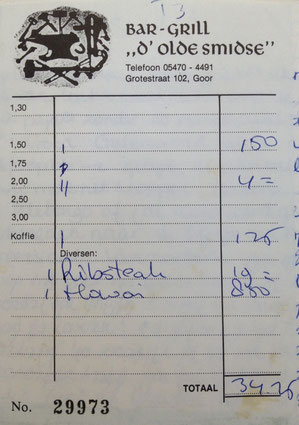 T3
BAR-GRILL
„D' OLDE SMIDSE”
Telefoon 05470 - 4491
Grotestraat 102, Goor
1,30
1,50 1 150
1,75
2,00 11 4=
2,50
3,00
Koffie 1 125
Diversen:
1 Ribsteak 19=
1 Hawai 850
TOTAAL 34.25
No. 29973